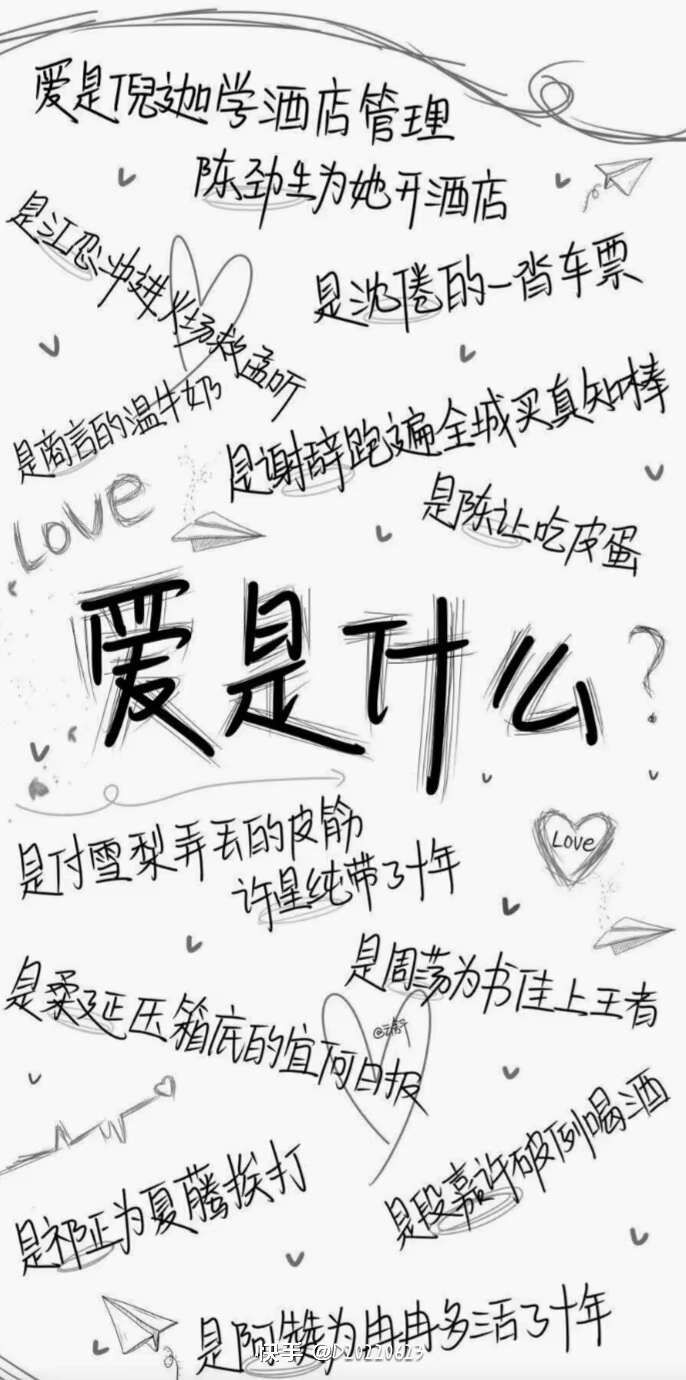 爱是倪迦学酒店管理
陈劲生为她开酒店
是江忍冲进火场救孟听
是沈倦的一沓车票
是商言的温牛奶
是谢辞跑遍全城买真知棒
Love
是陈让吃皮蛋
爱是什么?
是付雪梨弄丢的皮筋
许星纯带了十年
Love
是周荡为书佳上王者
是柔延压箱底的宜河日报
是段嘉许破例喝酒
是祁正为夏藤挨打
是阿赞为冉冉多活了十年
快手 @D20220623